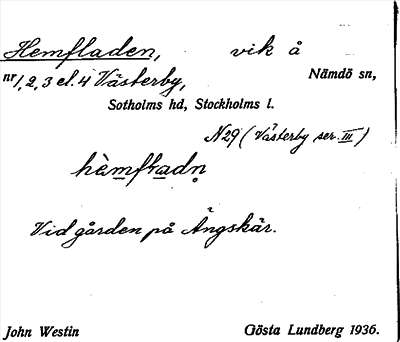 Hemfladen, vik å
nr 1, 2, 3 el. 4 Västerby, Nämdö sn,
Sotholms hd, Stockholms l.
N29 (Västerby ser. III)
hèmfladn̥
Vid gården på Ängskär.
John Westin Gösta Lundberg 1936.